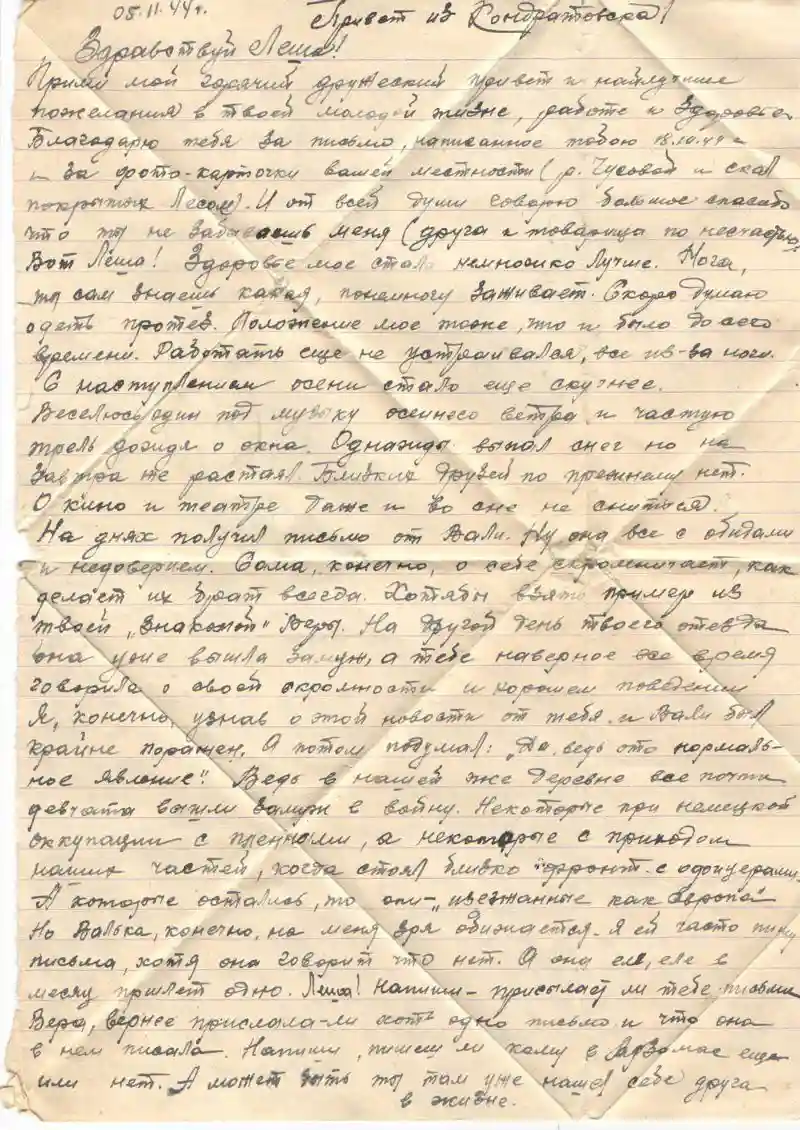 05.11.44 г. Привет из Кондратовска!
Здравствуй Леша!
Прими мой горячий дружеский привет и найлучшие
пожелания в твоей молодой жизне, работе и здоровье.
Благодарю тебя за письмо, написанное тобою 18.10.44 г
и за фото-карточки вашей местности (р. Чусовой и скал
покрытых лесом). И от всей души говорю большое спасибо
что ты не забываешь меня (друга и товарища по несчастью).
Вот Леша! Здоровье мое стало немножко лучше. Нога,
ты сам знаешь какая, понемногу заживает. Скоро думаю
одеть протез. Положение мое тоже, что и было до сего
времени. Работать еще не устраивался, все из-за ноги.
С наступлением осени стало еще скучнее.
Веселюсь один под музыку осеннего ветра и частую
трель дождя о окна. Однажды выпал снег но на
завтра же растаял. Близких друзей по прежнему нет.
О кино и театре даже и во сне не снится.
На днях получил письмо от Вали. Ну она все с обидами
и недоверием. Сама, конечно, о себе скромничает, как
делает их брат всегда. Хотябы взять пример из
твоей „знакомой" Веры. На другой день твоего отезда
она уже вышла замуж, а тебе наверное все время
говорила о своей скромности и хорошем поведении
Я, конечно, узнав о этой новости от тебя и Вали был
крайне поражен. А потом подумал: „Да ведь это нормаль-
ное явление"! Ведь в нашей же деревне все почти
девчата вышли замуж в войну. Некоторые при немецкой
оккупации с пленными, а некоторые с приходом
наших частей, когда стоял близко фронт с офицерами.
А которые остались, то они- „изезжанные как Европа"
Но Валька, конечно, на меня зря обижается. Я ей часто пишу
письма, хотя она говорит что нет. А она еле, еле в
месяц пришлет одно. Леша! Напиши- присылает ли тебе письма
Вера, вернее прислала-ли хоть одно письмо и что она
в нем писала. Напиши, пишеш ли кому в Арзамас еще
или нет. А может быть ты там уже нашел себе друга
в жизне.